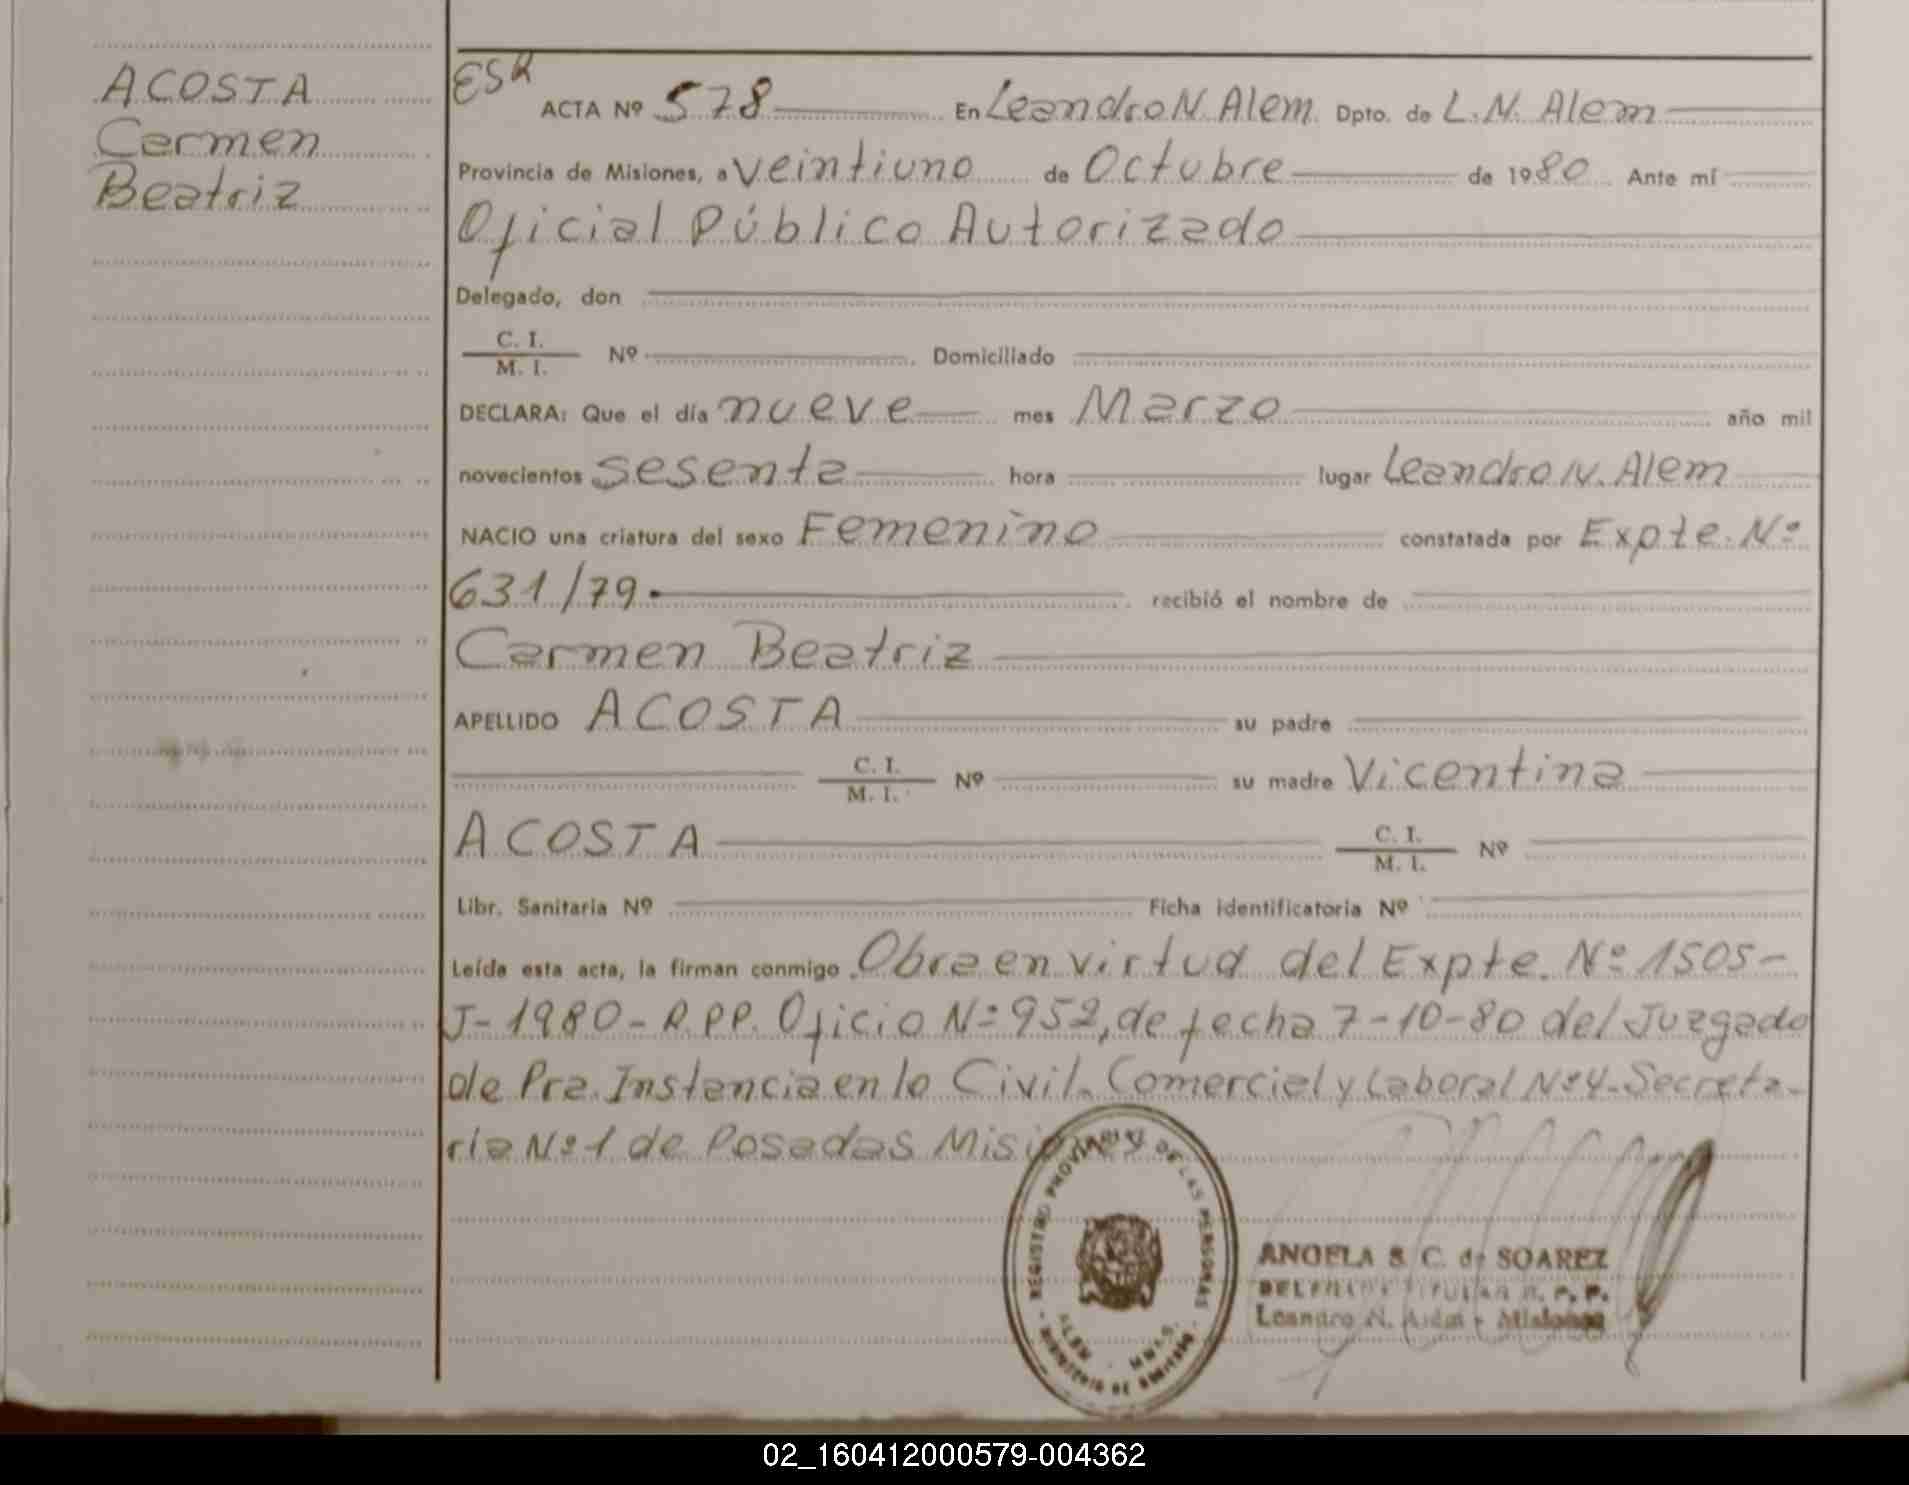 ACOSTA
Carmen
Beatriz
ESR
ACTA Nº 578 En Leandro N. Alem Dpto. de L. N. Alem
Provincia de Misiones, a veintiuno de Octubre de 1980 Ante mí
Oficial Público Autorizado
Delegado, don
C. I.
M. I. Nº Domiciliado
DECLARA: Que el día nueve mes Marzo año mil
novecientos sesenta hora lugar Leandro N. Alem
NACIO una criatura del sexo Femenino constatada por Expte. Nº
631/79. recibió el nombre de
Carmen Beatriz
APELLIDO ACOSTA su padre
C. I.
M. I. Nº su madre Vicentina
ACOSTA C. I.
M. I. Nº
Libr. Sanitaria Nº Ficha identificatoria Nº
Leída esta acta, la firman conmigo Obra en virtud del Expte. Nº 1505-
J-1980-R.PP. Oficio Nº 952, de fecha 7-10-80 del Juzgado
de Pra. Instancia en lo Civil. Comercial y Laboral Nº 4-Secreta-
ria Nº 1 de Posadas Misiones
REGISTRO PROVINCIAL DE LAS PERSONAS
ALEM - MNES.
MINISTERIO DE GOBIERNO
ANGELA S. C. de SOAREZ
DELEGADA TITULAR R. P. P.
Leandro N. Alem - Misiones
02_160412000579-004362